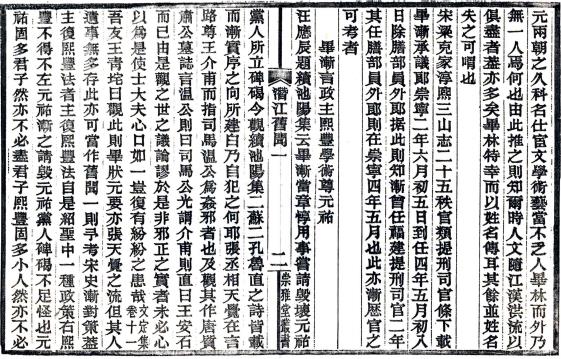 元兩朝之久科名仕宦文學術藝當不乏人畢林而外乃
無一人焉何也由此推之則知爾時人文隨江漢洪流以
俱盡者蓋亦多矣畢林特幸而以姓名傳耳其餘並姓名
失之可喟也
宋梁克家淳熙三山志二十五秩官類提刑司官條下載
畢漸承議郎崇寧二年六月初五日到任四年五月初入
日除膳部員外郎據此則知漸曾任福建提刑司官二年
其任膳部員外郎則在崇寧四年五月也此亦漸歷官之
可考者
畢漸言政主熙豐學術尊元祐
汪應辰題續池陽集云畢漸當章惇用事嘗請毀壞元祐
潛江舊聞一
二
崇雅堂叢書
黨人所立碑碣今觀續池陽集二蘇二孔魯直之詩皆載
而漸實序之向所建白乃自犯之何耶張丞相天覺在言
路尊王介甫而指司馬溫公為姦邪者也及觀其作唐質
肅公墓誌言溫公則曰司馬公光謂介甫則直曰王安石
而已由是觀之世之議論謬於是非邪正之實者未必心
以為是使士大夫心口如一豈復有紛紛之患哉文定集卷十一
吾友王青垞曰觀此則畢狀元要亦張天覺之流但其人
遺事無多存此亦可當作舊聞一則予考宋史漸對策蓋
主復熙豐法者主復熙豐法自是紹聖中一種政策右熙
豐不得不左元祐漸之請毀元祐黨人碑碣不足怪也元
祐固多君子然亦不必盡君子熙豐固多小人然亦不必